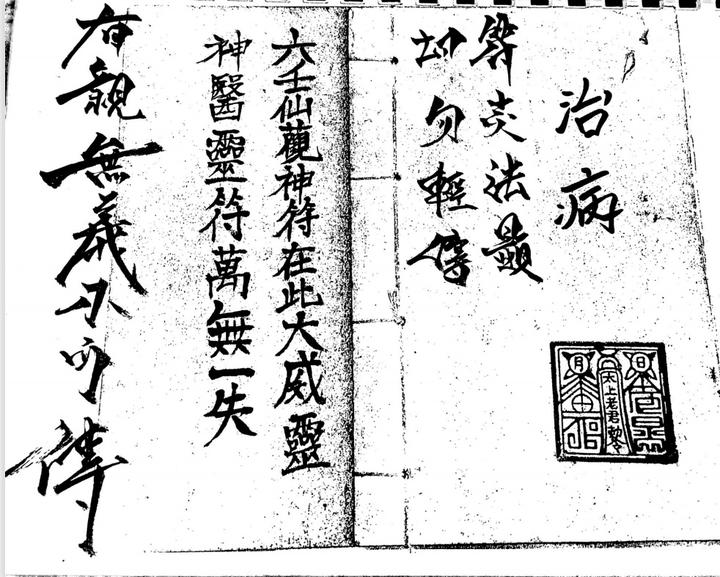 治病
法顯
切勿輕傳
六壬仙觀神符在此大威靈
神醫靈符萬無一失
有親無義不可傳
日
太上老君敕令
月